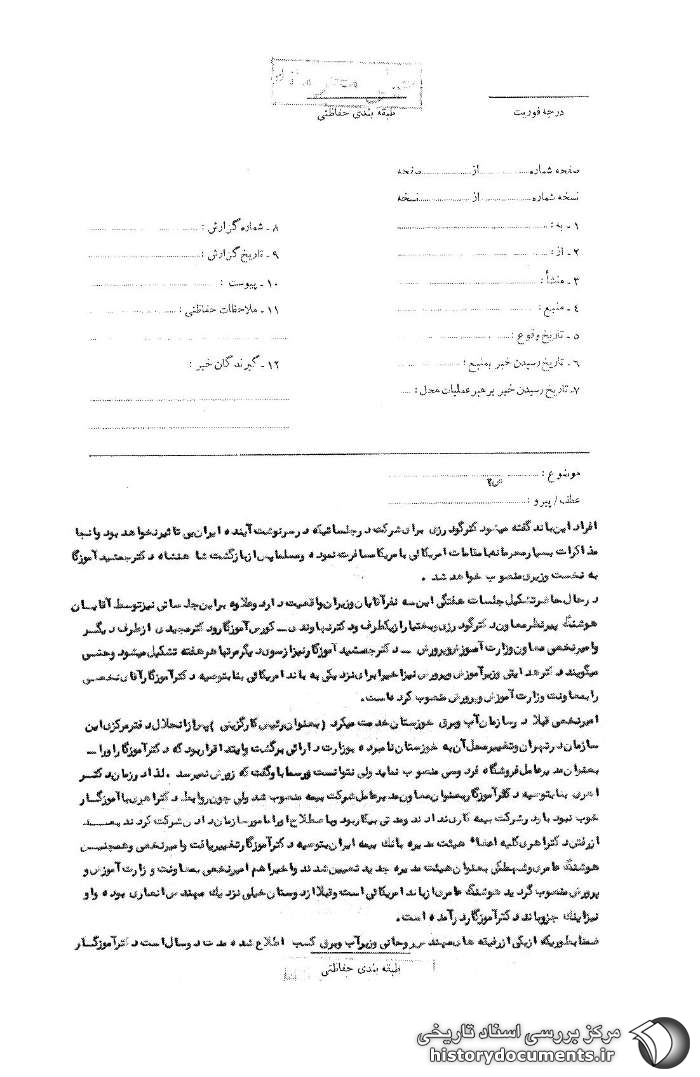 خیلی محرمانه
طبقه بندی حفاظتی
درجه فوریت
صفحه شماره از صفحه
نسخه شماره از نسخه
۱ ـ به :
۲ ـ از :
۳ ـ منشأ :
۴ ـ منبع :
۵ ـ تاریخ وقوع :
۶ ـ تاریخ رسیدن خبر بمنبع :
۷ـ تاریخ رسیدن خبر برهبر عملیات محل :
۸ ـ شماره گزارش :
۹ ـ تاریخ گزارش :
۱۰ ـ پیوست :
۱۱ ـ ملاحظات حفاظتی :
۱۲ ـ گیرندگان خبر :
موضوع :
ص۲
عطف / پیرو :
افراد این باند گفته میشود دکتر گودرزی برای شرکت در جلساتیکه در سرنوشت آینده ایران بی تاثیر نخواهد بود و انجا
مذاکرات بسیار محرمانه با مقامات امریکائی بامریکا مسافرت نموده و مسلما پس از بازگشت شاهنشاه دکتر جمشید آموزگا
به نخست وزیری منصوب خواهد شد .
در حال حاضر تشکیل جلسات هفتگی این سه نفر آقایان وزیران واقعیت دارد و علاوه بر این جلساتی نیز توسط آقایان
هوشنگ پیرنظر معاون دکتر گودرزی و بختیار از یکطرف و دکتر نهاوندی ـ کورس آموزگار و دکتر مجیدی از طرف دیگر
و امیر نخعی معاون وزارت آموزش و پرورش ـ دکتر جمشید آموزگار نیز از سوی دیگر مرتبا هر هفته تشکیل میشود و حتی
میگویند دکتر هدایتی وزیر آموزش و پرورش نیز اخیرا برای نزدیکی به باند امریکائی بنا بتوصیه دکتر آموزگار آقای نخعی
را بمعاونت وزارت آموزش و پرورش منصوب کرده است .
امیر نخعی قبلا در سازمان آب و برق خوزستان خدمت میکرد (بعنوان رئیس کارگزینی) پس از انحلال دفتر مرکزی این
سازمان در تهران و تغییر محل آن به خوزستان نامبرده بوزارت دارائی برگشت و ابتدا قرار بود که دکتر آموزگار او را ـ
بعنوان مدیر عامل فروشگاه فردوسی منصوب نماید ولی نتوانست و رسما باو گفت که زورش نمیرسد . لذا در زمان دکتر
امری بنا بتوصیه دکتر آموزگار بعنوان معاون مدیر عامل شرکت بیمه منصوب شد ولی چون روابط دکتر امری با آموزگار
خوب نبود با و در شرکت بیمه کاری ندادند و مدتی بیکار بود و باصطلاح او را مامور سازماندادن شرکت کردند بعد
از رفتن دکتر امری کلیه اعضاء هیئت مدیره بانک بیمه ایران بتوصیه دکتر آموزگار تغییر یافت و امیر نخعی و همچنین
هوشنگ عامری و شهبطکی بعنوان هیئت مدیره جدید تعیین شدند و اخیرا هم امیر نخعی بمعاونت وزارت آموزش و
پرورش منصوب گردید هوشنگ عامری از باند امریکائی است و قبلا از دوستان خیلی نزدیک مهندس انصاری بوده و او
نیز اینک جزو باند دکتر آموزگار در آمده است .
ضمنا بطوریکه از یکی از رفیقه های مهندس روحانی وزیر آب و برق کسب اطلاع شده مدت دو سال است دکتر آموزگار
طبقه بندی حفاظتی
مرکز بررسی اسناد تاریخی
historydocuments.ir